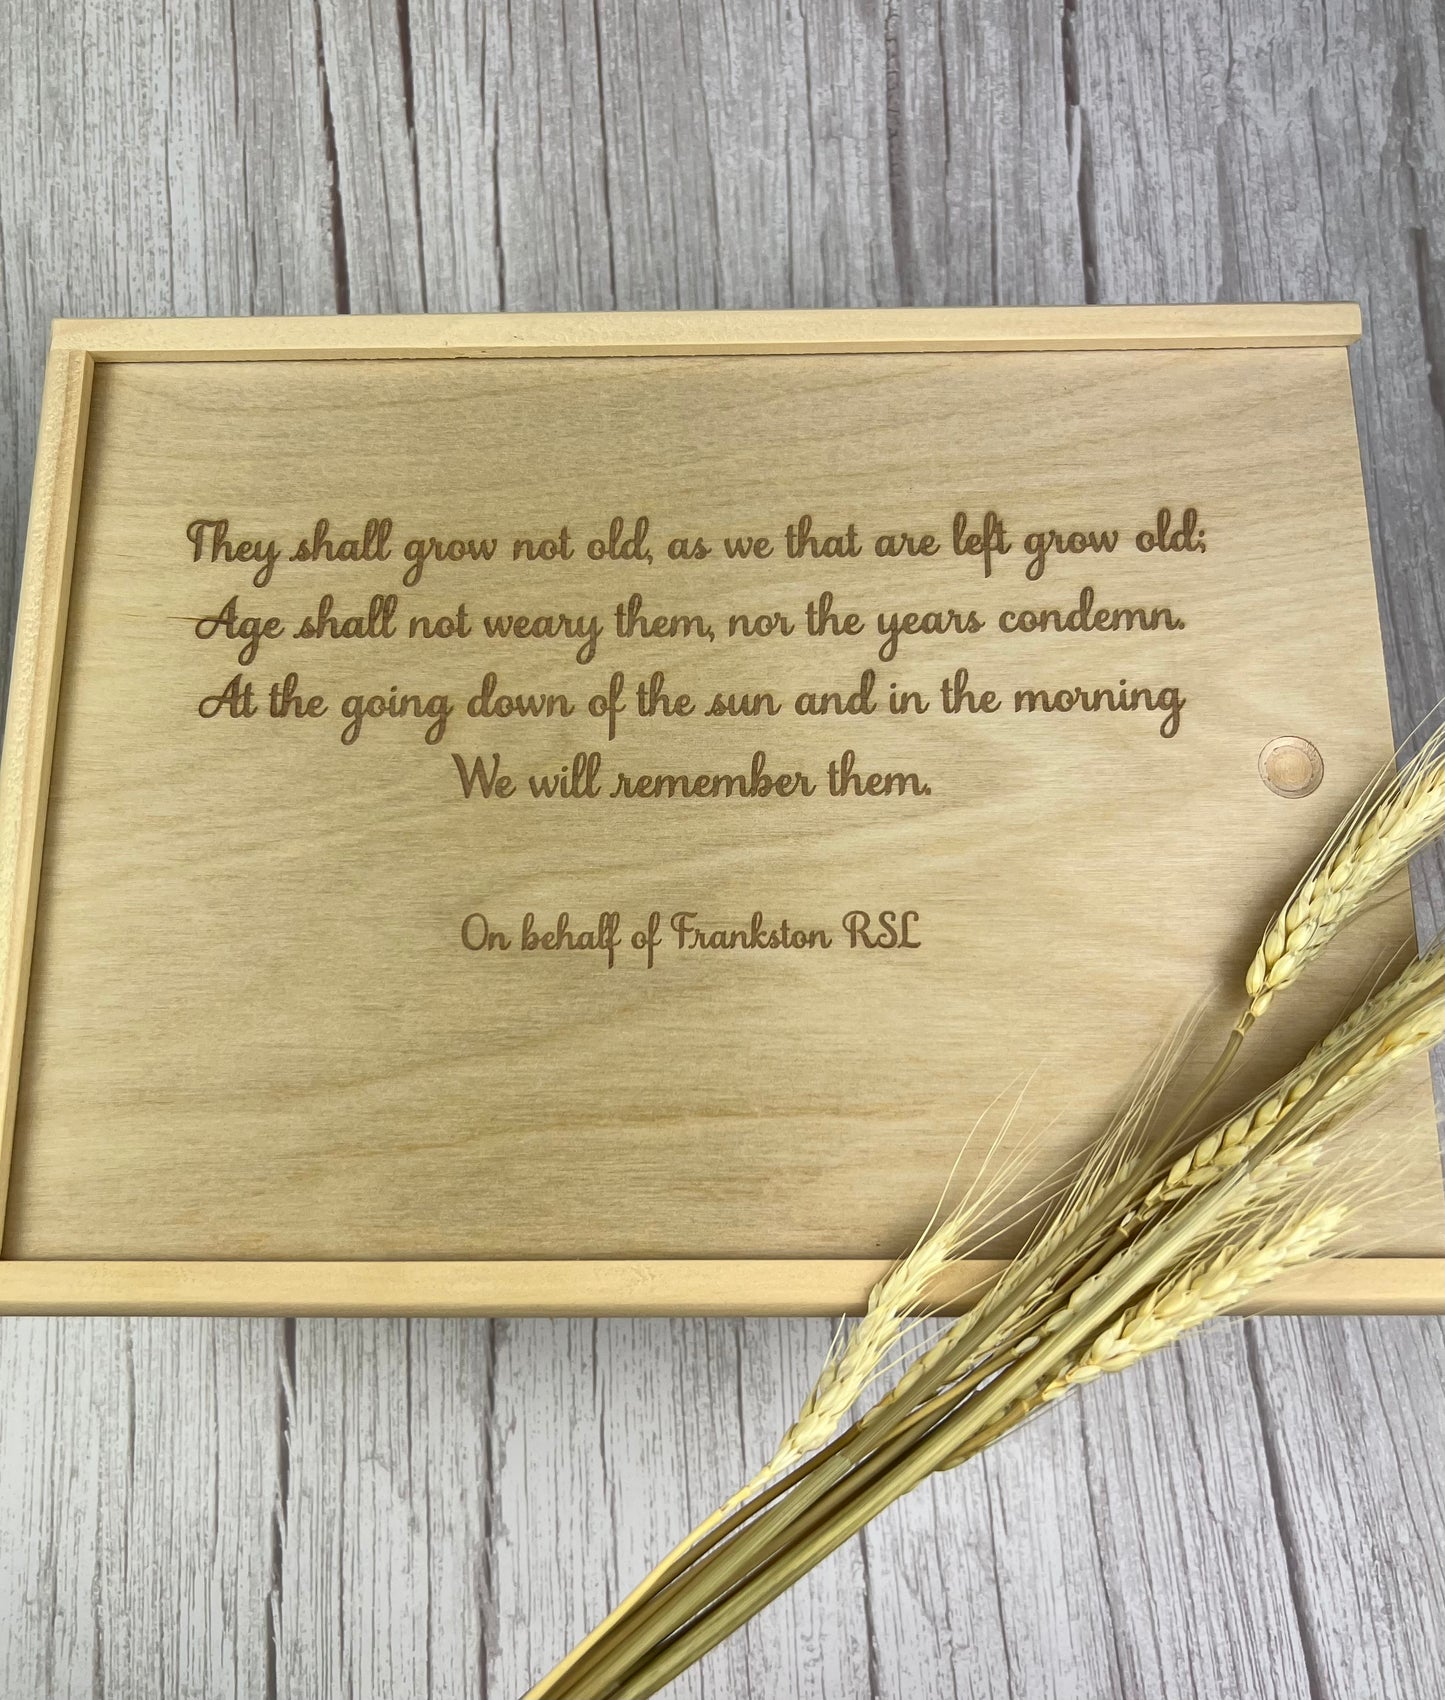 They shall grow not old, as we that are left grow old;
Age shall not weary them, nor the years condemn.
At the going down of the sun and in the morning
We will remember them.
On behalf of Frankston RSL